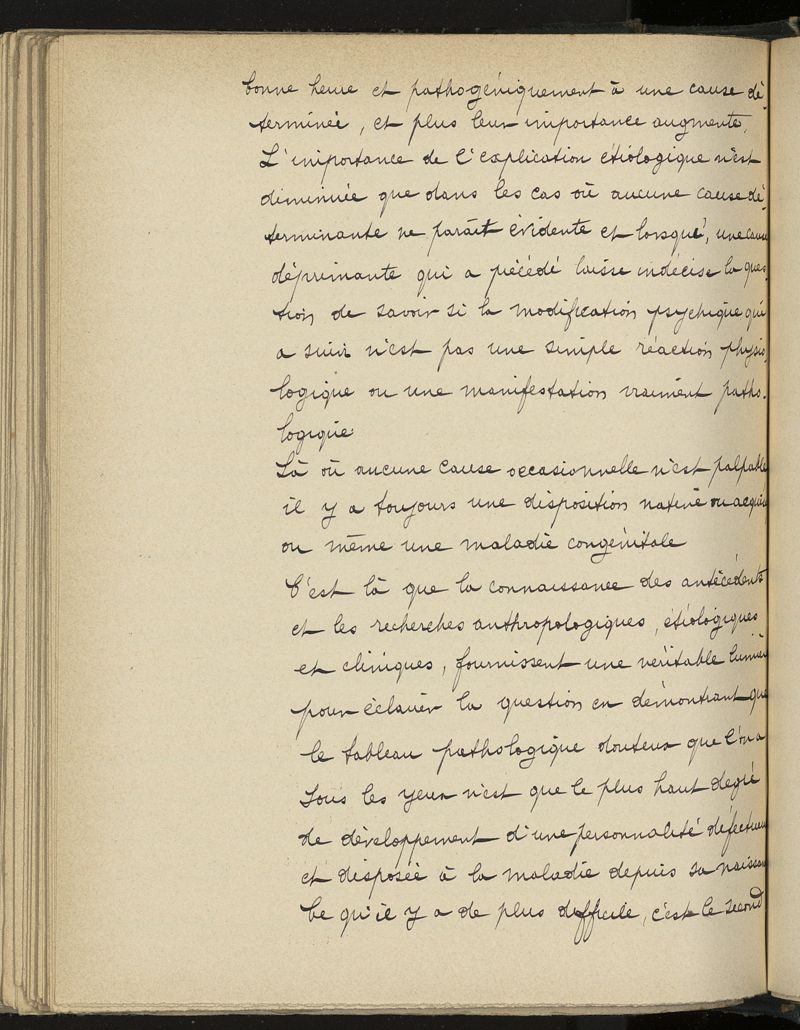 bonne heure et pathogéniquement à une cause dé-
terminée, et plus leur importance augmente.
L'importance de l'explication étiologique n'est
diminuée que dans les cas où aucune cause dé-
terminante ne paraît évidente et lorsque, une cause
déprimante qui a précédé laisse indécise la ques-
tion de savoir si la modification psychique qui
a suivi n'est pas une simple réaction physio-
logique ou une manifestation vraiment patho-
logique.
Là où aucune cause occasionnelle n'est palpable
il y a toujours une disposition native ou acquise
ou même une maladie congénitale
C'est là que la connaissance des antécédents
et les recherches anthropologiques, étiologiques
et cliniques, fournissent une véritable lumière
pour éclairer la question en démontrant que
le tableau pathologique douteux que l'on a
sous les yeux n'est que le plus haut degré
de développement d'une personnalité défectueuse
et disposée à la maladie depuis sa naissance
Ce qu'il y a de plus difficile, c'est le second